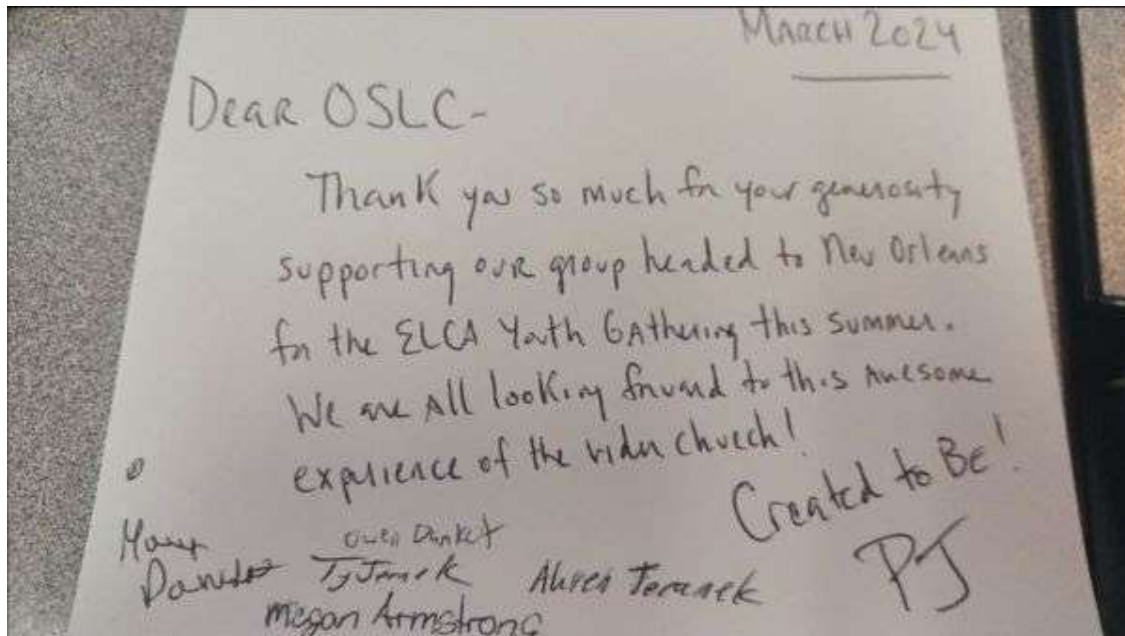 MARCH 2024
Dear OSLC-
Thank you so much for your generosity
supporting our group headed to New Orleans
for the ELCA Youth Gathering this summer.
We are all looking forward to this awesome
experience of the wider church!
Created to Be!
PJ
Owen
Ty
Megan Armstrong